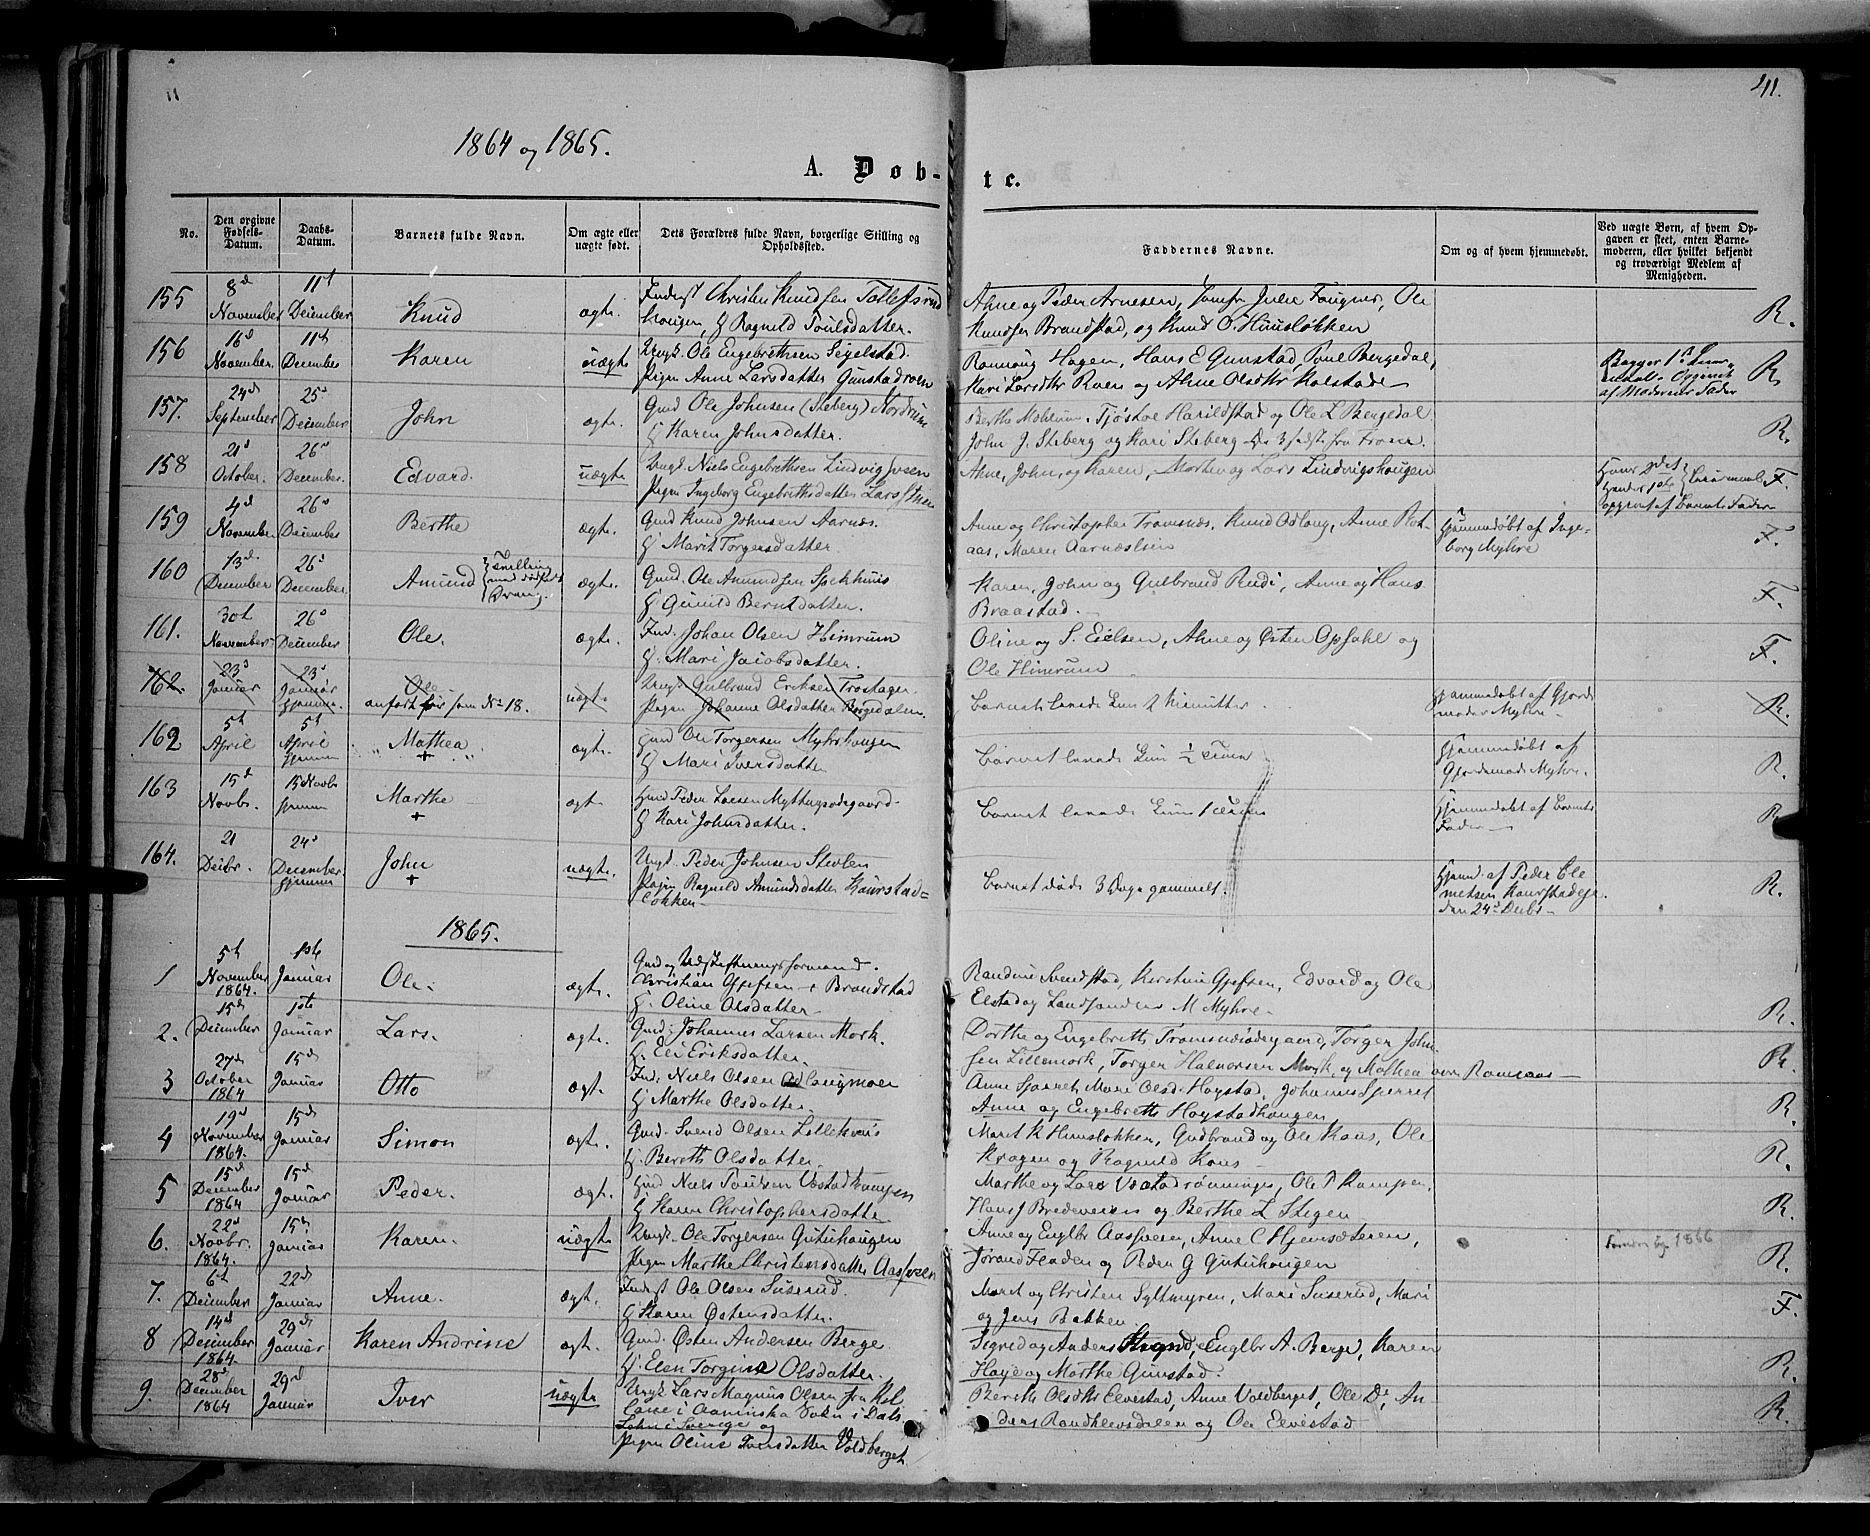 41.
1864 og 1865.
A. Døb-
te.
No.
Den opgivne
Fødsels-
Datum.
Daabs-
Datum.
Barnets fulde Navn.
Om ægte eller
uægte født.
Dets Forældres fulde Navn, borgerlige Stilling og
Opholdssted.
Faddernes Navne.
Om og af hvem hjemmedøbt.
Ved uægte Børn, af hvem Op-
gaven er skeet, enten Barne-
moderen, eller hvilket bekjendt
og troværdigt Medlem af
Menigheden.
155
8d
November
11t
December
Knud
ægte.
Inderst Christen Knudsen
H Ragnild Poulsdatter.
Ahne og Peder Arnesen, Jomfr Julie Faugner, Ole
Knudsen Brandstad, og Knud O. Huusløkken
R.
156
16d
November
11te
December
Karen
uægte
Ungk. Ole Engebrethsen Segelstad.
Pigen Anne Larsdatter Gunstadroen
Hagen, Hans E Gunstad, Poul Bergedal,
Kari Larsdtr Roen og Ahne Olsdtr Kolstad
af Moderens Fader
R.
157.
24d
September
25d
December
John
ægte.
Gmd Ole Johnsen (Steberg) Nordrum
H Karen Johnsdatter.
Tjøstov Harildstad og Ole L Bergedal
John J. Steberg og Kari Steberg De 3 sidste fra Froen.
R.
158
21d
October.
26d
December.
Edvard.
uægte
Ungk. Niels Engebrethsen
Pigen Ingeborg Engebrethsdatter
Ahne, John, og Karen, Morten og Lars Lindvigshougen
opgivet af Barnets Fader
F.
159
4d
November
26d
December
Berthe
ægte.
Gmd Knud Johnsen Aarnæs.
H Marit Torgersdatter.
Anne og Christopher Tromsnæs, Knud Odlaug, Anne Rot-
aas, Maren Aarnæseien
Hjemmedøbt af Inge-
borg Myhre
F.
160
13d.
December
26d
December
Amund
Tvilling
med dødfødt
Dreng.
ægte.
Gmd. Ole Amundsen Spekhuus
H Gunild Berntdatter.
Karen, John og Gulbrand Rudi, Anne og Hans
Braastad.
F.
161.
30t
November
26d
December
Ole.
ægte.
Ind. Johan Olsen Himrum
H. Mari Jacobsdatter.
Oline og S. Eielsen, Ahne og Østen Opsahl og
Ole Himrum
F.
162.
23d
Januar
23d
Januar
hjemme
Ole
anført før som No 18.
uægte
Ungk Gulbrand Eriksen Trostager.
Pigen Johanne Olsdatter Bergedalen.
Barnet levede kun 2 Minutter.
Hjemmedøbt af Gjord-
moder Myhre
R.
162
5t
April
5t
April
hjemme
Mathea
+
ægte.
Gmd Ole Torgersen Myhrehougen
H Mari Iversdatter
Barnet levede kun 1/2 Time
Hjemmedøbt af
Gjordemoder Myhre.
R.
163
15d
Novbr.
15 Novbr
hjemme
Marthe
+
ægte.
Hmd Peder Larsen Myttingsødegaard
H Kari Johnsdatter.
Barnet levede kun 1 Time
Hjemmedøbt af Barnets
Fader
R.
164.
21
Decbr.
24d
December
hjemme
John
+
uægte.
Ungk. Peder Johnsen
Pigen Ragnild Amundsdatter Kaurstad-
løkken
Barnet døde 3 Dage gammelt.
Hjemd af Peder Cle
metsen Kaurstadeje.
den 24d Decbr
R.
1865.
1
5t
November
1864.
1ste
Januar
Ole.
ægte.
Gmd og Udskiftningsformand.
Christian Gjefsen Brandstad
H. Oline Olsdatter
Randine Svendstad, Kirstine Gjefsen, Edvard og Ole
Elstad og Landhandler M Myhre
R.
2.
15d
December
1ste
Januar
Lars.
ægte.
Gmd. Johannes Larsen Mork.
H. Eli Eriksdatter.
Dorthe og Engebreth Tromsnæsødegaard, Torger John-
sen Lillemork, Torger Halvorsen Mork, og Mathea Ramsaas
R.
3
27d
October
1864
15d
Januar
Otto
ægte
Ind. Niels Olsen Odlaugmoen
H Marthe Olsdatter.
Anne Sperret, Mari Olsd. Høystad, Johannes Sperret
Anne og Engebreth Høystadhaugen
R.
4
19d
November
1864.
15d
Januar
Simon
ægte.
Gmd. Svend Olsen Lillekaus
H. Berethe Olsdatter
Maret K Huusløkken, Gudbrand og Ole Kaus, Ole
Kragen og Ragnild Kaus
R.
5
15d
December
1864
15d
Januar
Peder.
ægte.
Hmd Niels Poulsen Vestadhaugen
H Karen Christophersdatter
Marthe og Lars Vestadrønningen, Ole P Kampen,
Hans J Bredeveien og Berthe L Stegen
R.
6.
22d
Novbr.
1864.
15d
Januar
Karen.
uægte
Ungk. Ole Torgersen Gutuhaugen
Pigen Marthe Christensdatter Aasveen
Anne og Englbr Aasveen, Anne C Hjemsæteren,
Jørand Fladen og Peder G Gutuhaugen
1866
R.
7.
6t
December
22d
Januar
Anne.
ægt.
Inderst Ole Olsen Suserud.
H Karen Østensdatter.
Maret og Christen Syltmyren, Mari Suserud, Mari
og Jens Bakken
F.
8
14d
December
1864.
29d
Januar
Karen Andrine
ægt.
Gmd. Østen Andersen Berge
H. Elen Torgine Olsdatter.
Sigrid og Anders Stegnd, Englbr A. Berge, Karen
Haye og Marthe Gunstad.
R.
9.
28d
December
1864
29d
Januar
Iver
uægte
Ungk. Lars Magnus Olsen fra
i Aaminska Sokn i Dals
Lehn i Sverige og
Pigen Oline Iversdatter Voldberget
Berethe Olsdtr Elvestad, Anne Voldberget, Ole D., An-
ders Randklevsdalen og Ole Elvestad
R.